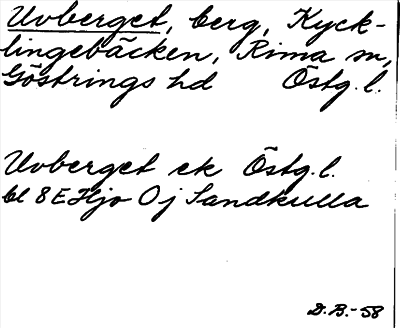 Uvberget, berg, Kyck-
lingebäcken, Rinna sn,
Göstrings hd Östg. l.
Uvberget ek Östg. l.
bl 8E Hjo 0j Sandkulla
D.B.-58